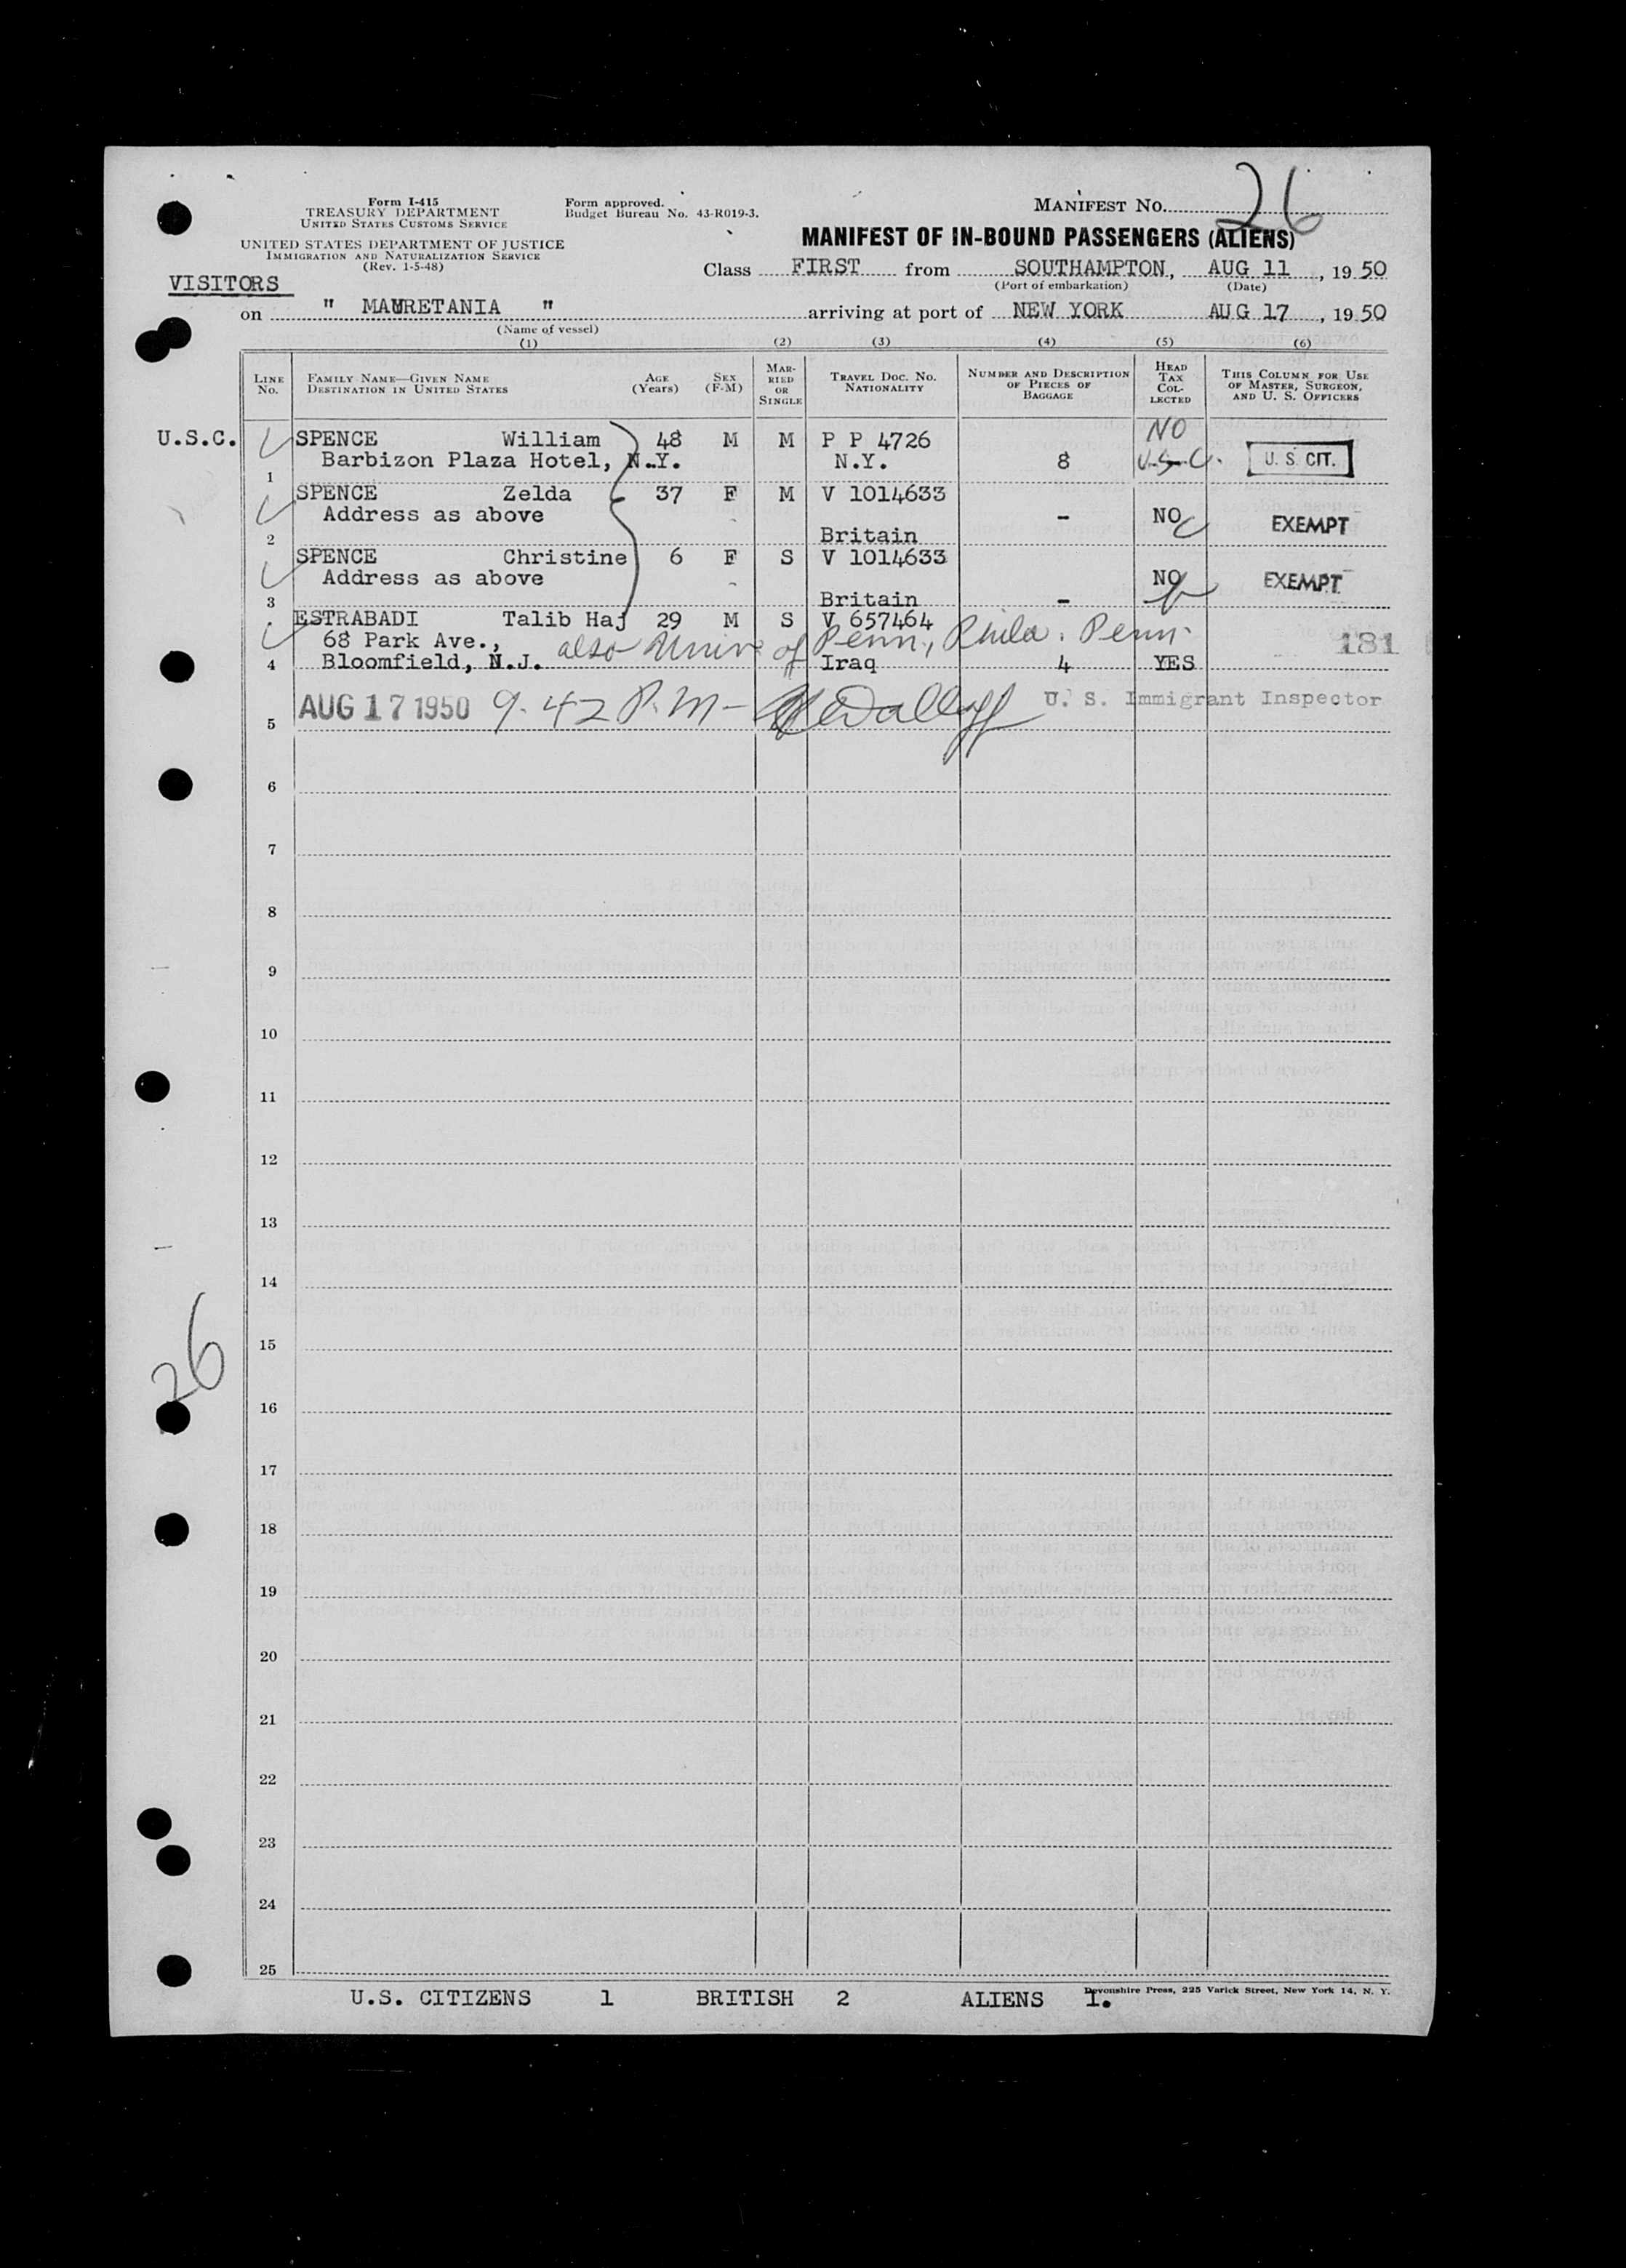 26
Form I-415
TREASURY DEPARTMENT
UNITED STATES CUSTOMS SERVICE
Form approved.
Budget Bureau No. 43-R019-3.
MANIFEST NO.
UNITED STATES DEPARTMENT OF JUSTICE
IMMIGRATION AND NATURALIZATION SERVICE
(Rev. 1-5-48)
MANIFEST OF IN-BOUND PASSENGERS (ALIENS)
Class FIRST from SOUTHAMPTON, AUG 11, 1950
(Port of embarkation) (Date)
VISITORS
on " MAURETANIA " arriving at port of NEW YORK AUG 17, 1950
(Name of vessel)
(1) (2) (3) (4) (5) (6)
LINE NO. FAMILY NAME—GIVEN NAME DESTINATION IN UNITED STATES AGE (Years) SEX (F-M) MARRIED OR SINGLE TRAVEL DOC. NO. NATIONALITY NUMBER AND DESCRIPTION OF PIECES OF BAGGAGE HEAD TAX COLLECTED THIS COLUMN FOR USE OF MASTER, SURGEON, AND U. S. OFFICERS
U.S.C. SPENCE William 48 M M P P 4726 NO
Barbizon Plaza Hotel, N.Y. N.Y. 8 U.S.C. U. S. CIT.
1
SPENCE Zelda 37 F M V 1014633
Address as above - NO EXEMPT
2 Britain
SPENCE Christine 6 F S V 1014633
Address as above NO EXEMPT
3 Britain -
ESTRABADI Talib Haj 29 M S V 657464
68 Park Ave., also Univ of Penn, Phila. Penn. 181
4 Bloomfield, N.J. Iraq 4 YES
AUG 17 1950 9.42 P.M- U. S. Immigrant Inspector
5
6
7
8
9
10
11
12
13
14
15
26
16
17
18
19
20
21
22
23
24
25
U.S. CITIZENS 1 BRITISH 2 ALIENS 1.
Devonshire Press, 225 Varick Street, New York 14, N. Y.